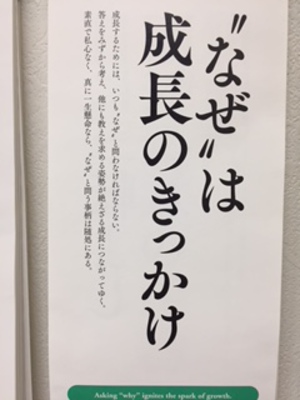 〝なぜ〟は
成長のきっかけ
成長するためには、いつも〝なぜ〟と問わなければならない。
答えをみずから考え、他にも教えを求める姿勢が絶えざる成長につながってゆく。
素直で私心なく、真に一生懸命なら、〝なぜ〟と問う事柄は随処にある。
Asking "why" ignites the spark of growth.